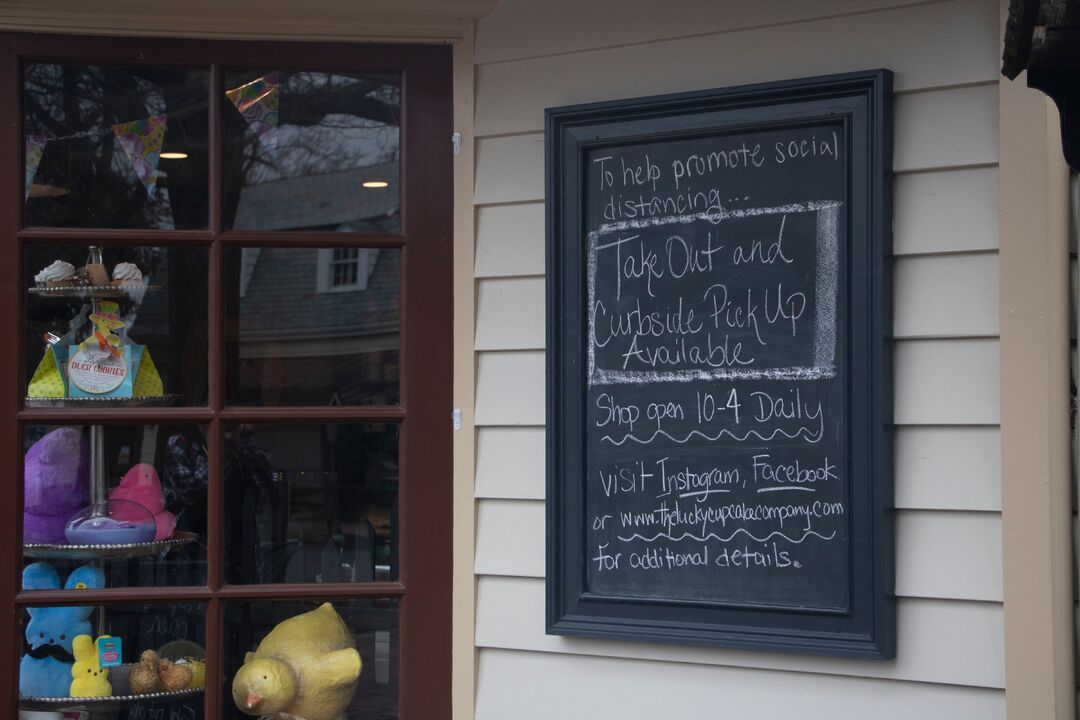 DUCK COOKIES
To help promote social
distancing...
Take Out and
Curbside Pick Up
Available
Shop open 10-4 Daily
visit Instagram, Facebook
or www.theluckycupcakecompany.com
for additional details.